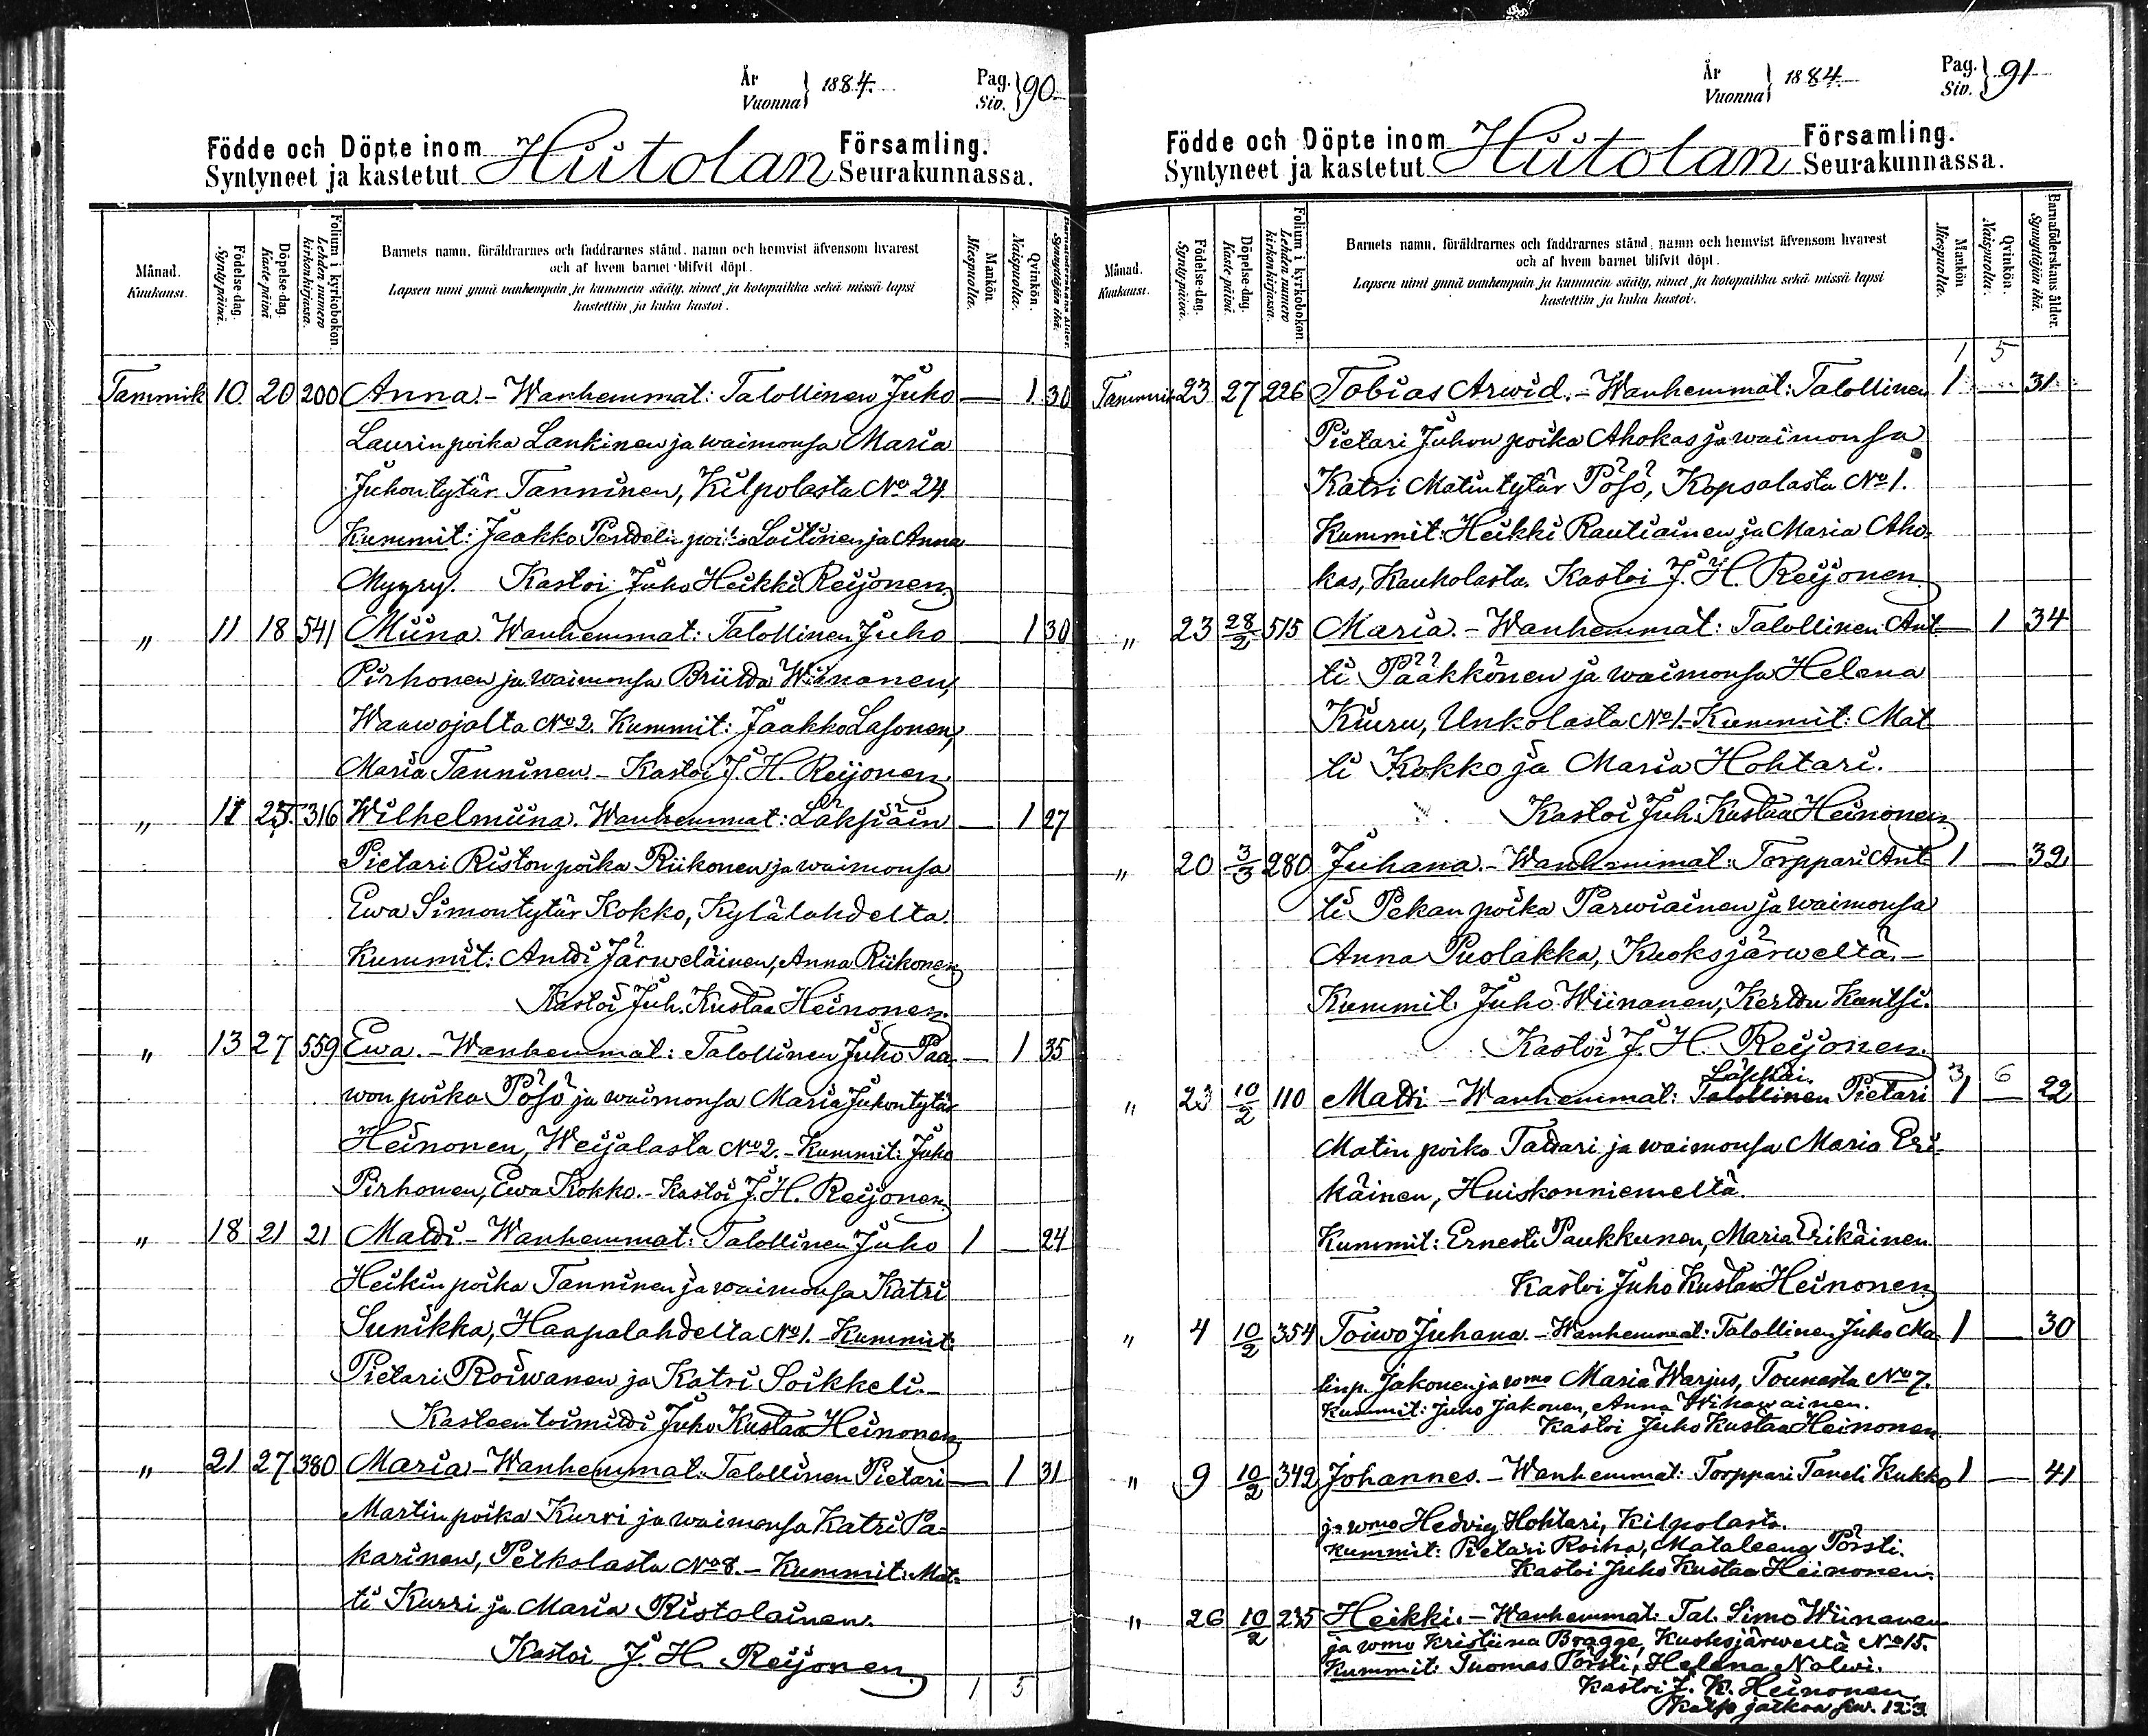 År Vuonna } 1884. Pag. Siv. } 90
Födde och Döpte inom Hiitolan Församling.
Syntyneet ja kastetut Seurakunnassa.
Månad. Kuukausi.
Födelse-dag. Syntypäivä.
Döpelse-dag. Kastepäivä
Folium i kyrkobokon. Lehden numero kirkonkirjassa.
Barnets namn, föräldrarnes och faddrarnes stånd, namn och hemvist äfvensom hvarest
och af hvem barnet blifvit döpt.
Lapsen nimi ynnä vanhempain ja kummein sääty, nimet ja kotopaikka sekä missä lapsi
kastettiin ja kuka kastoi.
Mankön. Miespuolia.
Qvinkön. Naispuolia.
Barnaföderskans ålder. Synnyttäjän ikä.
Tammik 10 20 200 Anna. - Wanhemmat: Talollinen Juho — 1 30
Laurin poika Lankinen ja waimonsa Maria
Juhontytär Tanninen, Kilpolasta No 24
Kummit: Jaakko Pendelin poika Loitinen ja Anna
Myyry. Kastoi Juho Heikki Reijonen
" 11 18 541 Miina. Wanhemmat: Talollinen Juho — 1 30
Pirhonen ja waimonsa Briitta Wiinanen,
Waawojalta No 2. Kummit: Jaakko Lasonen,
Maria Tanninen. - Kastoi J. H. Reijonen
" 11 25 316 Wilhelmiina. Wanhemmat: Läksiäin — 1 27
Pietari Riston poika Riikonen ja waimonsa
Ewa Simontytär Kokko, Kylälahdelta.
Kummit: Andi Järweläinen, Anna Riikonen
Kastoi Juh. Kustaa Heinonen.
" 13 27 559 Ewa. - Wanhemmat: Talollinen Juho Paa- — 1 35
won poika Pösö ja waimonsa Maria Juhontytär
Heinonen, Weijalasta No 2. - Kummit: Juho
Pirhonen, Ewa Kokko. - Kastoi J. H. Reijonen
" 18 21 21 Matti - Wanhemmat: Talollinen Juho 1 — 24
Heikin poika Tanninen ja waimonsa Katri
Sunikka, Haapalahdelta No 1. - Kummit:
Pietari Roiwanen ja Katri Soikkeli. -
Kasteen toimitti Juho Kustaa Heinonen
" 21 27 380 Maria - Wanhemmat: Talollinen Pietari — 1 31
Martin poika Kurri ja waimonsa Katri Pa-
karinen, Petkolasta No 8. - Kummit: Mat-
ti Kurri ja Maria Ristolainen.
Kastoi J. H. Reijonen
1 5
År Vuonna } 1884. Pag. Siv. } 91
Födde och Döpte inom Hiitolan Församling.
Syntyneet ja kastetut Seurakunnassa.
Månad. Kuukausi.
Födelse-dag. Syntypäivä.
Döpelse-dag. Kaste päivä
Folium i kyrkobokon. Lehden numero kirkonkirjassa.
Barnets namn, föräldrarnes och faddrarnes stånd, namn och hemvist äfvensom hvarest
och af hvem barnet blifvit döpt.
Lapsen nimi ynnä vanhempain ja kummein sääty, nimet ja kotopaikka sekä missä lapsi
kastettiin ja kuka kastoi.
Mankön. Miespuolia.
Qvinkön. Naispuolia.
Barnaföderskans ålder. Synnyttäjän ikä.
1 5
Tammik 23 27 226 Tobias Arwid. - Wanhemmat: Talollinen 1 — 31
Pietari Juhon poika Ahokas ja waimonsa
Katri Matintytär Pösö, Kopsalasta No 1.
Kummit: Heikki Rautiainen ja Maria Aho-
kas, Kauholasta. Kastoi J. H. Reijonen
" 23 28/2 515 Maria. - Wanhemmat: Talollinen Ant — 1 34
ti Pääkkönen ja waimonsa Helena
Kiuru, Unkolasta No 1. - Kummit: Mat
ti Kokko ja Maria Hohtari.
Kastoi Juh. Kustaa Heinonen
" 20 3/3 280 Juhana. - Wanhemmat: Torppari Ant 1 — 39
ti Pekan poika Parwiainen ja waimonsa
Anna Puolakka, Kuoksjärweltä. -
Kummit: Juho Wiinanen, Kerttu Kantsi.
Kastoi J. H. Reijonen.
3 6
" 23 10/2 110 Matti - Wanhemmat: Talollinen Pietari 1 — 22
Matin poika Tattari ja waimonsa Maria Eri-
käinen, Huiskonniemeltä.
Kummit: Ernesti Paukkunen, Maria Erikäinen
Kastoi Juho Kustaa Heinonen
" 4 10/2 354 Toiwo Juhana. - Wanhemmat: Talollinen Juho Ma- 1 — 30
tinp. Jakonen ja wmo Maria Warjus, Tounasta No 7.
Kummit: Juho Jakonen, Anna Wihawainen.
Kastoi Juho Kustaa Heinonen
" 9 10/2 342 Johannes. - Wanhemmat: Torppari Taneli Kukko 1 — 41
ja wmo Hedvig Hohtari, Kilpolasta.
Kummit: Pietari Roiha, Mataleena Pörsti.
Kastoi Juho Kustaa Heinonen.
" 26 10/2 235 Heikki. - Wanhemmat: Tal. Simo Wiinanen
ja wmo Kristiina Bragge, Kuoksjärweltä No 15.
Kummit: Tuomas Pörsti, Helena Nalwi.
Kastoi J. K. Heinonen
Katso jatkoa siw. 123